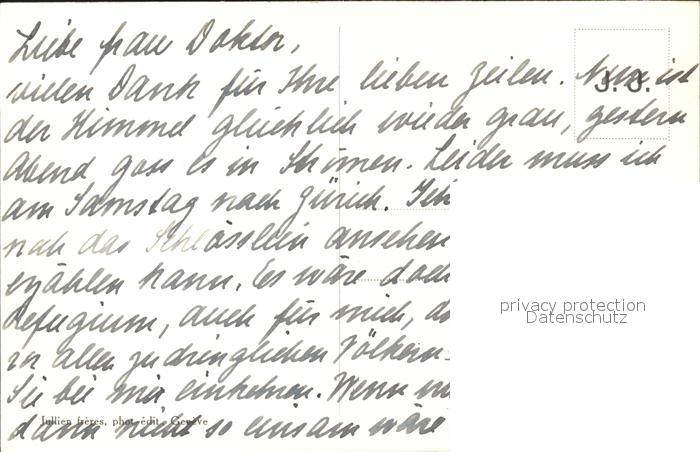 Liebe Frau Doktor,
vielen Dank für Ihre lieben Zeilen. Nun ist
der Himmel glücklich wieder grau, gestern
Abend goss es in Strömen. Leider muss ich
am Samstag nach Zürich. Ich
noch das Schlösslein ansehen
erzählen kann. Es wäre doch
Refugium, auch für mich, da
vor allen zudringlichen Völkern-
Sie bei mir einkehren. Wenn
dann nicht so einsam wäre
J. J.
Jullien frères, phot.-édit., Genève
privacy protection
Datenschutz